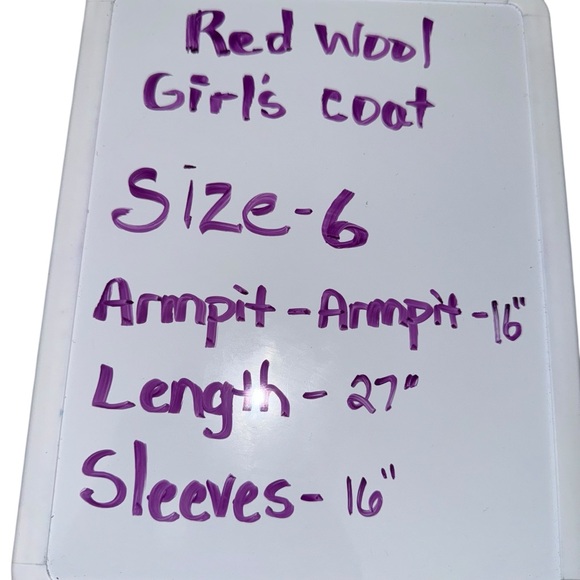 Red Wool
Girl's coat
Size-6
Armpit-Armpit-16"
Length-27"
Sleeves-16"